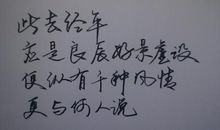 些去经年
应是良辰好景虚设
便纵有千种风情
更与何人说